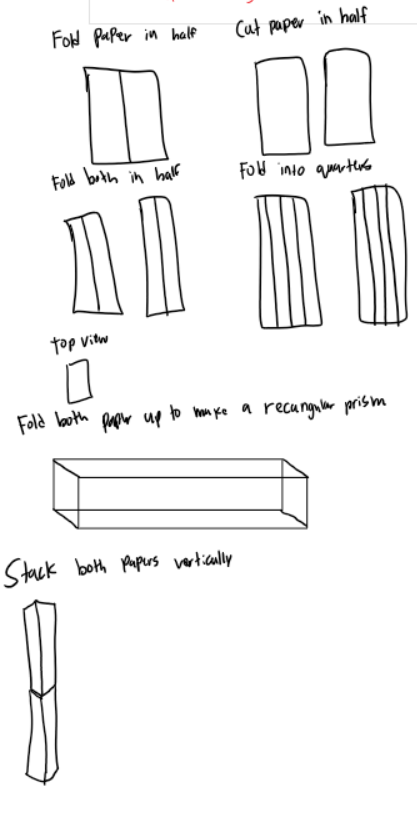 Fold paper in half
Cut paper in half
Fold both in half
Fold into quarters
top view
Fold both paper up to make a recungular prism
Stack both papers vertically